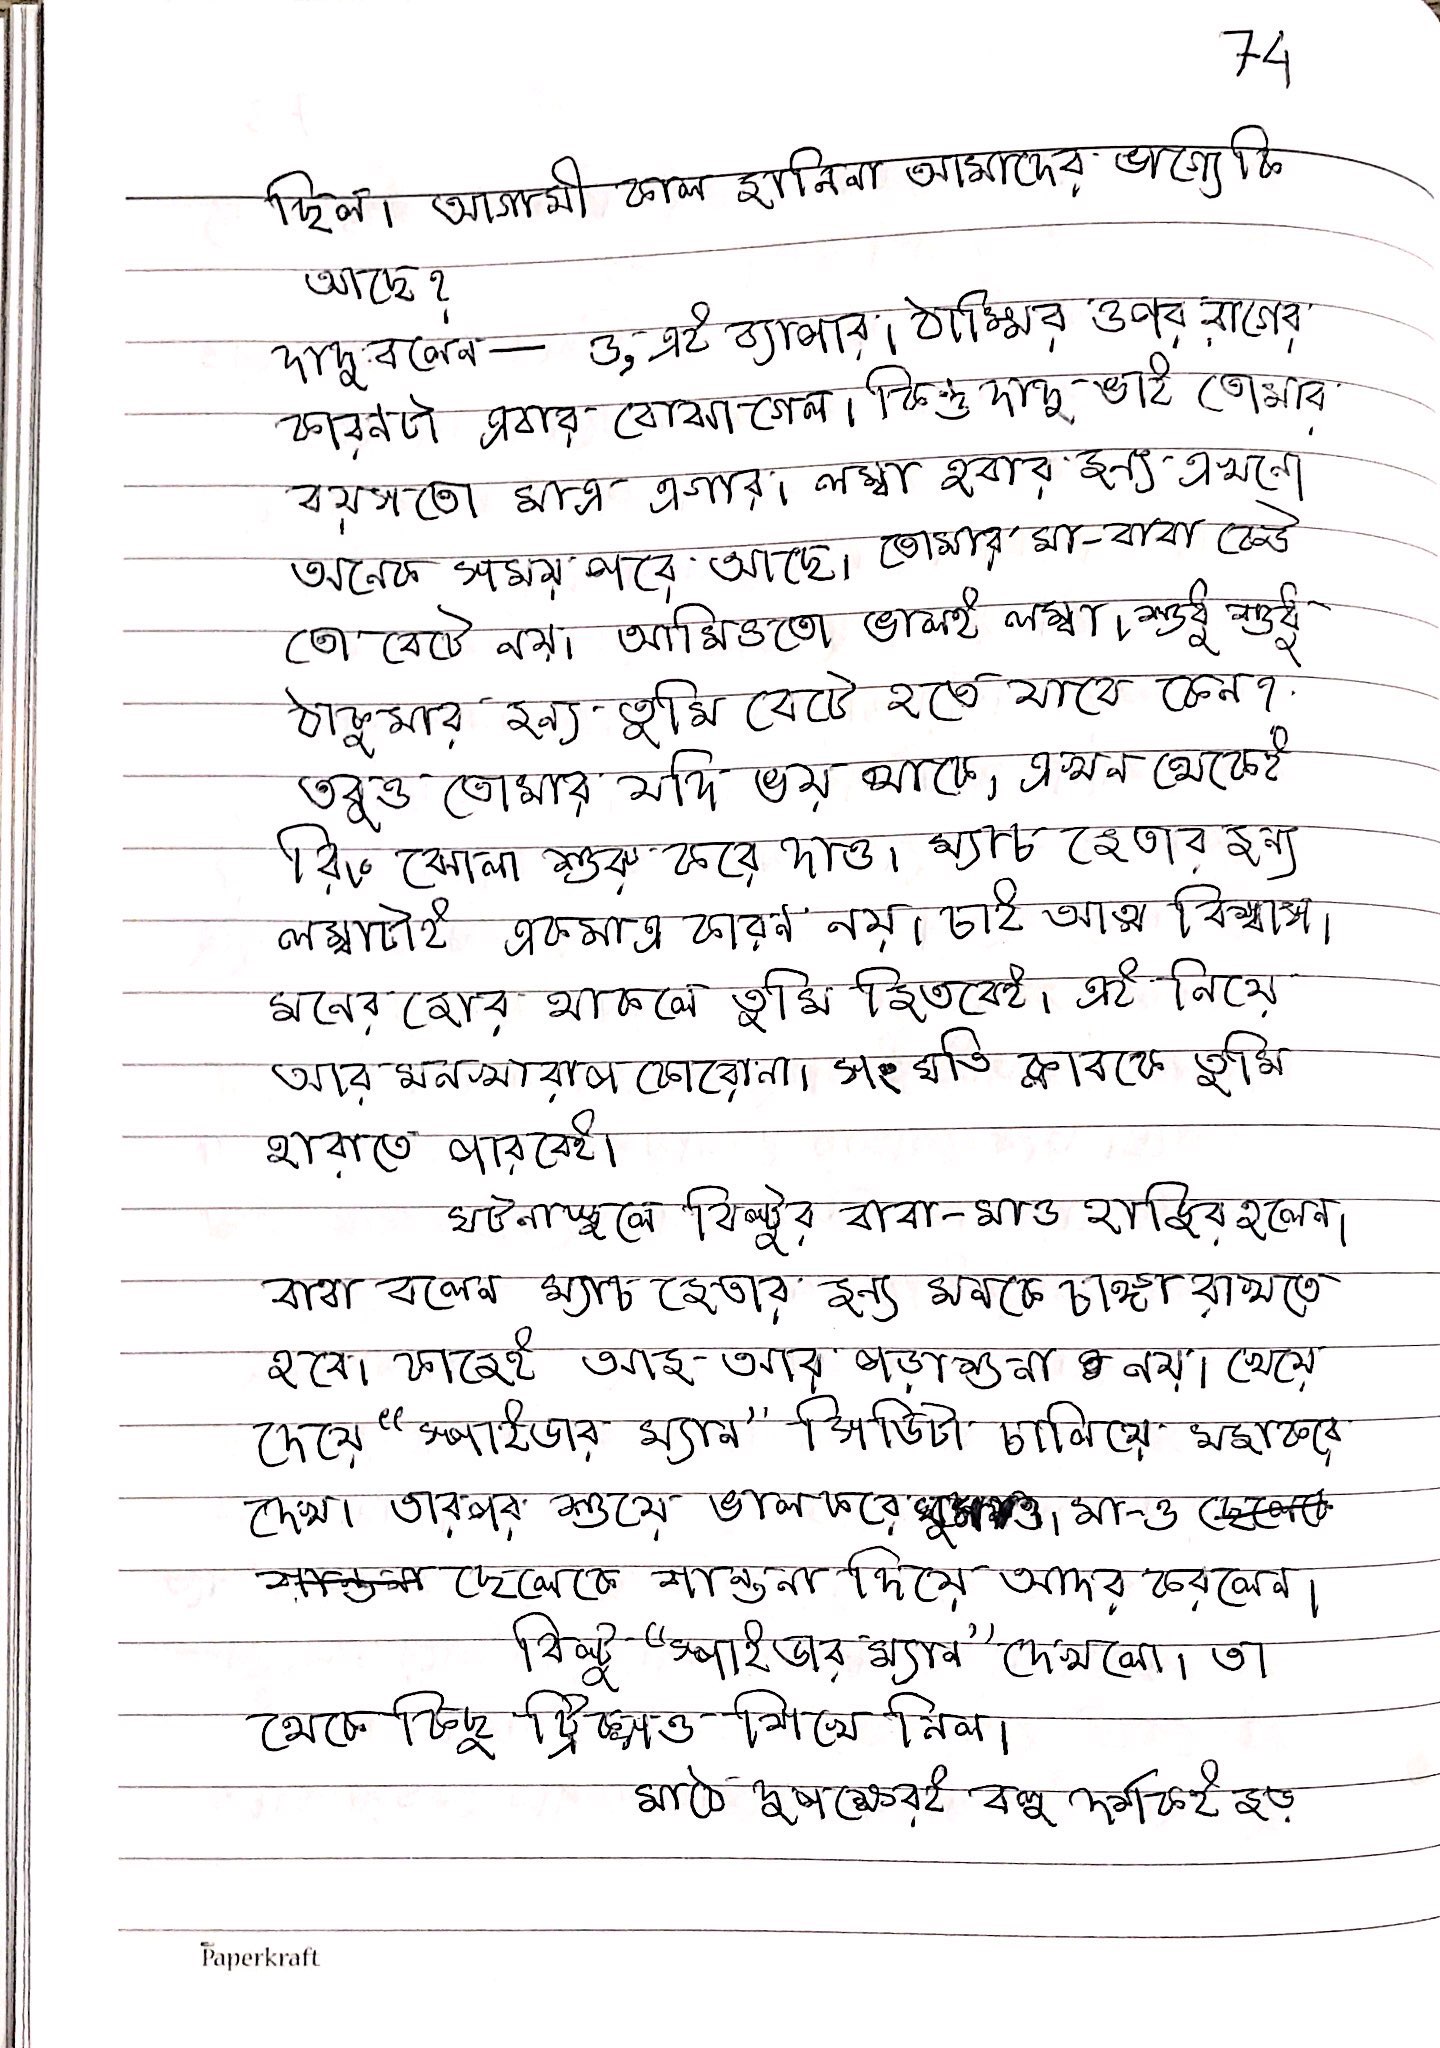 74
ছিল। আগামী কাল জানিনা আমাদের ভাগ্যে কি
আছে?
দাদু বলেন — ও, এই ব্যাপার। ঠাম্মির ওপর রাগের
কারনটা এবার বোঝা গেল। কিন্তু দাদু-ভাই তোমার
বয়স তো মাত্র এগার। লম্বা হবার জন্য এখনো
অনেক সময় পরে আছে। তোমার মা-বাবা কেউ
তো বেটে নয়। আমিওতো ভালই লম্বা। শুধু শুধু
ঠাকুমার জন্য তুমি বেটে হতে যাবে কেন?
তবুও তোমার যদি ভয় থাকে, এখন থেকেই
রিং ঝোলা শুরু করে দাও। ম্যাচ জেতার জন্য
লম্বাটাই একমাত্র কারন নয়। চাই আত্ম বিশ্বাস।
মনের জোর থাকলে তুমি জিতবেই। এই নিয়ে
আর মন খারাপ কোরোনা। সংঘতি ক্লাবকে তুমি
হারাতে পারবেই।
ঘটনাস্থলে বিল্টুর বাবা-মাও হাজির হলেন।
বাবা বলেন ম্যাচ জেতার জন্য মনকে চাঙ্গা রাখতে
হবে। কাজেই আজ-আর পড়াশুনা নয়। খেয়ে
দেয়ে “স্পাইডার ম্যান” সিডিটা চালিয়ে মজাকরে
দেখ। তারপর শুয়ে ভাল করে ঘুমাও। মা-ও ছেলেকে
শান্তনা ছেলেকে শান্তনা দিয়ে আদর করলেন।
বিল্টু “স্পাইডার ম্যান” দেখলো। তা
থেকে কিছু ট্রিক্সও শিখে নিল।
মাঠে দুপক্ষেরই বহু দর্শকই জড়
Paperkraft